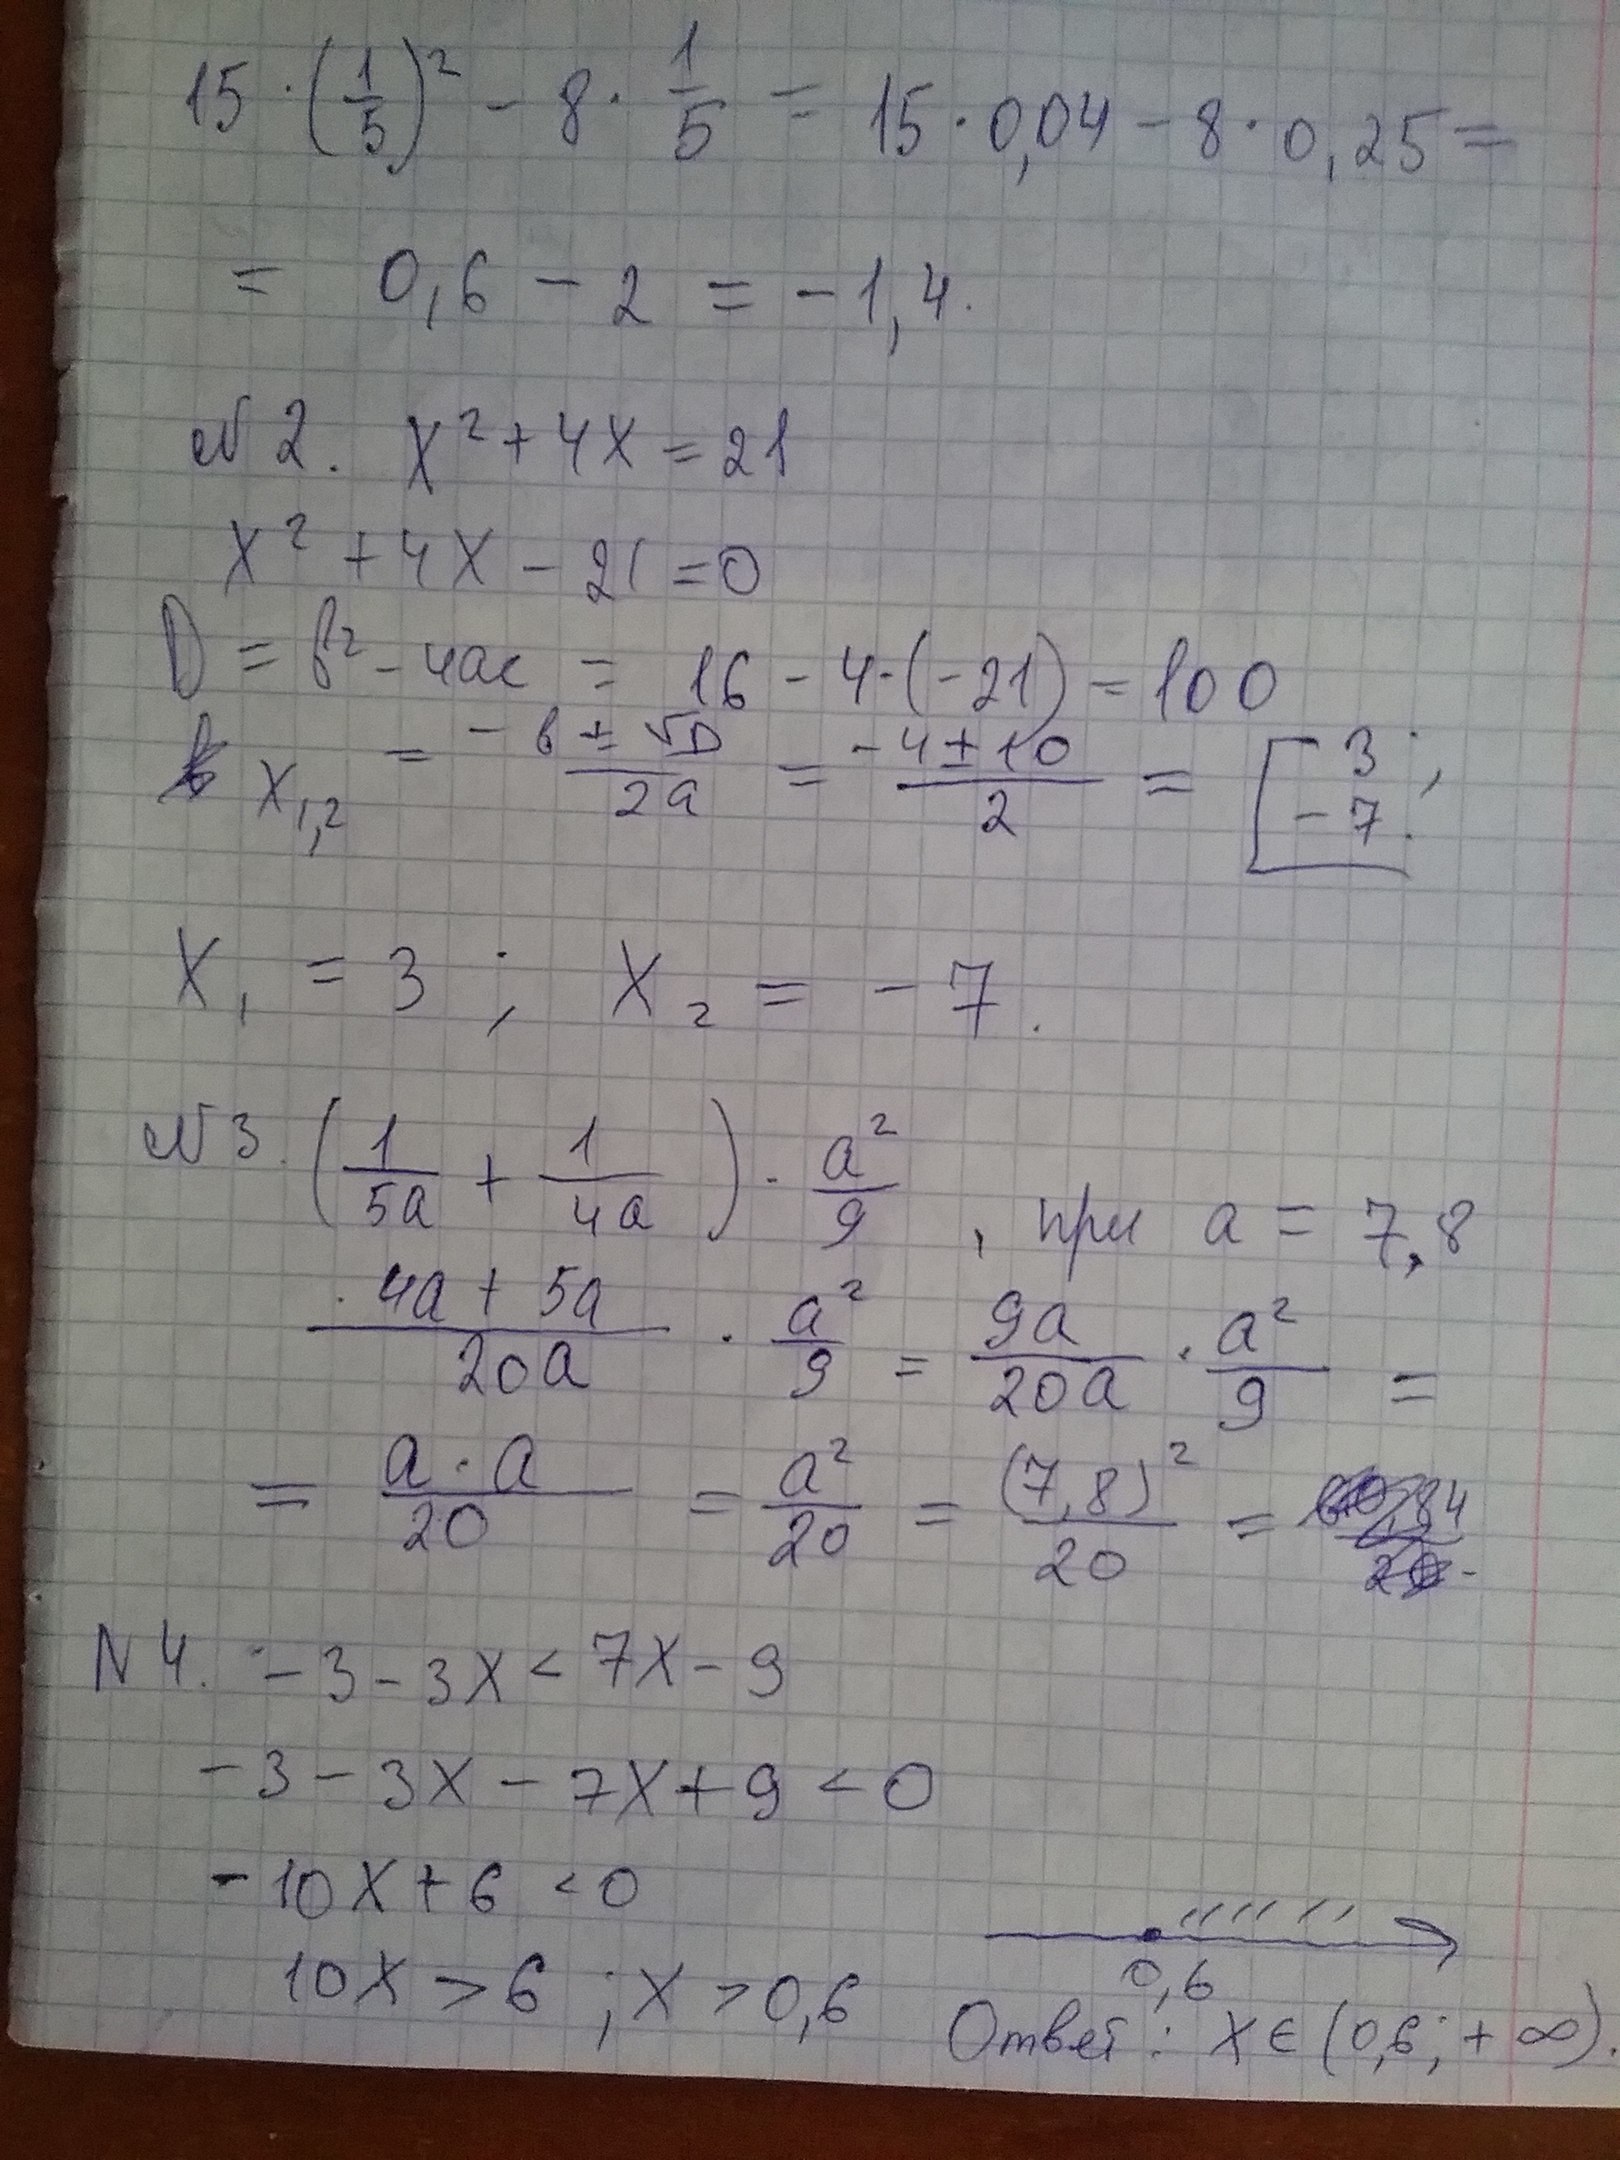 15 · (1/5)² - 8 · 1/5 = 15 · 0,04 - 8 · 0,25 =
= 0,6 - 2 = -1,4.
№2. x² + 4x = 21
x² + 4x - 21 = 0
D = b² - 4ac = 16 - 4·(-21) = 100
x₁,₂ = (-b ± √D)/2a = (-4 ± 10)/2 = [3; -7.
x₁ = 3 ; x₂ = -7.
№3. (1/5a + 1/4a) · a²/9 , при a = 7,8
(4a + 5a)/20a · a²/9 = 9a/20a · a²/9 =
= a·a/20 = a²/20 = (7,8)²/20 =
N4. -3 - 3x < 7x - 9
-3 - 3x - 7x + 9 < 0
-10x + 6 < 0
10x > 6 ; x > 0,6
0,6
Ответ: x ∈ (0,6; +∞).